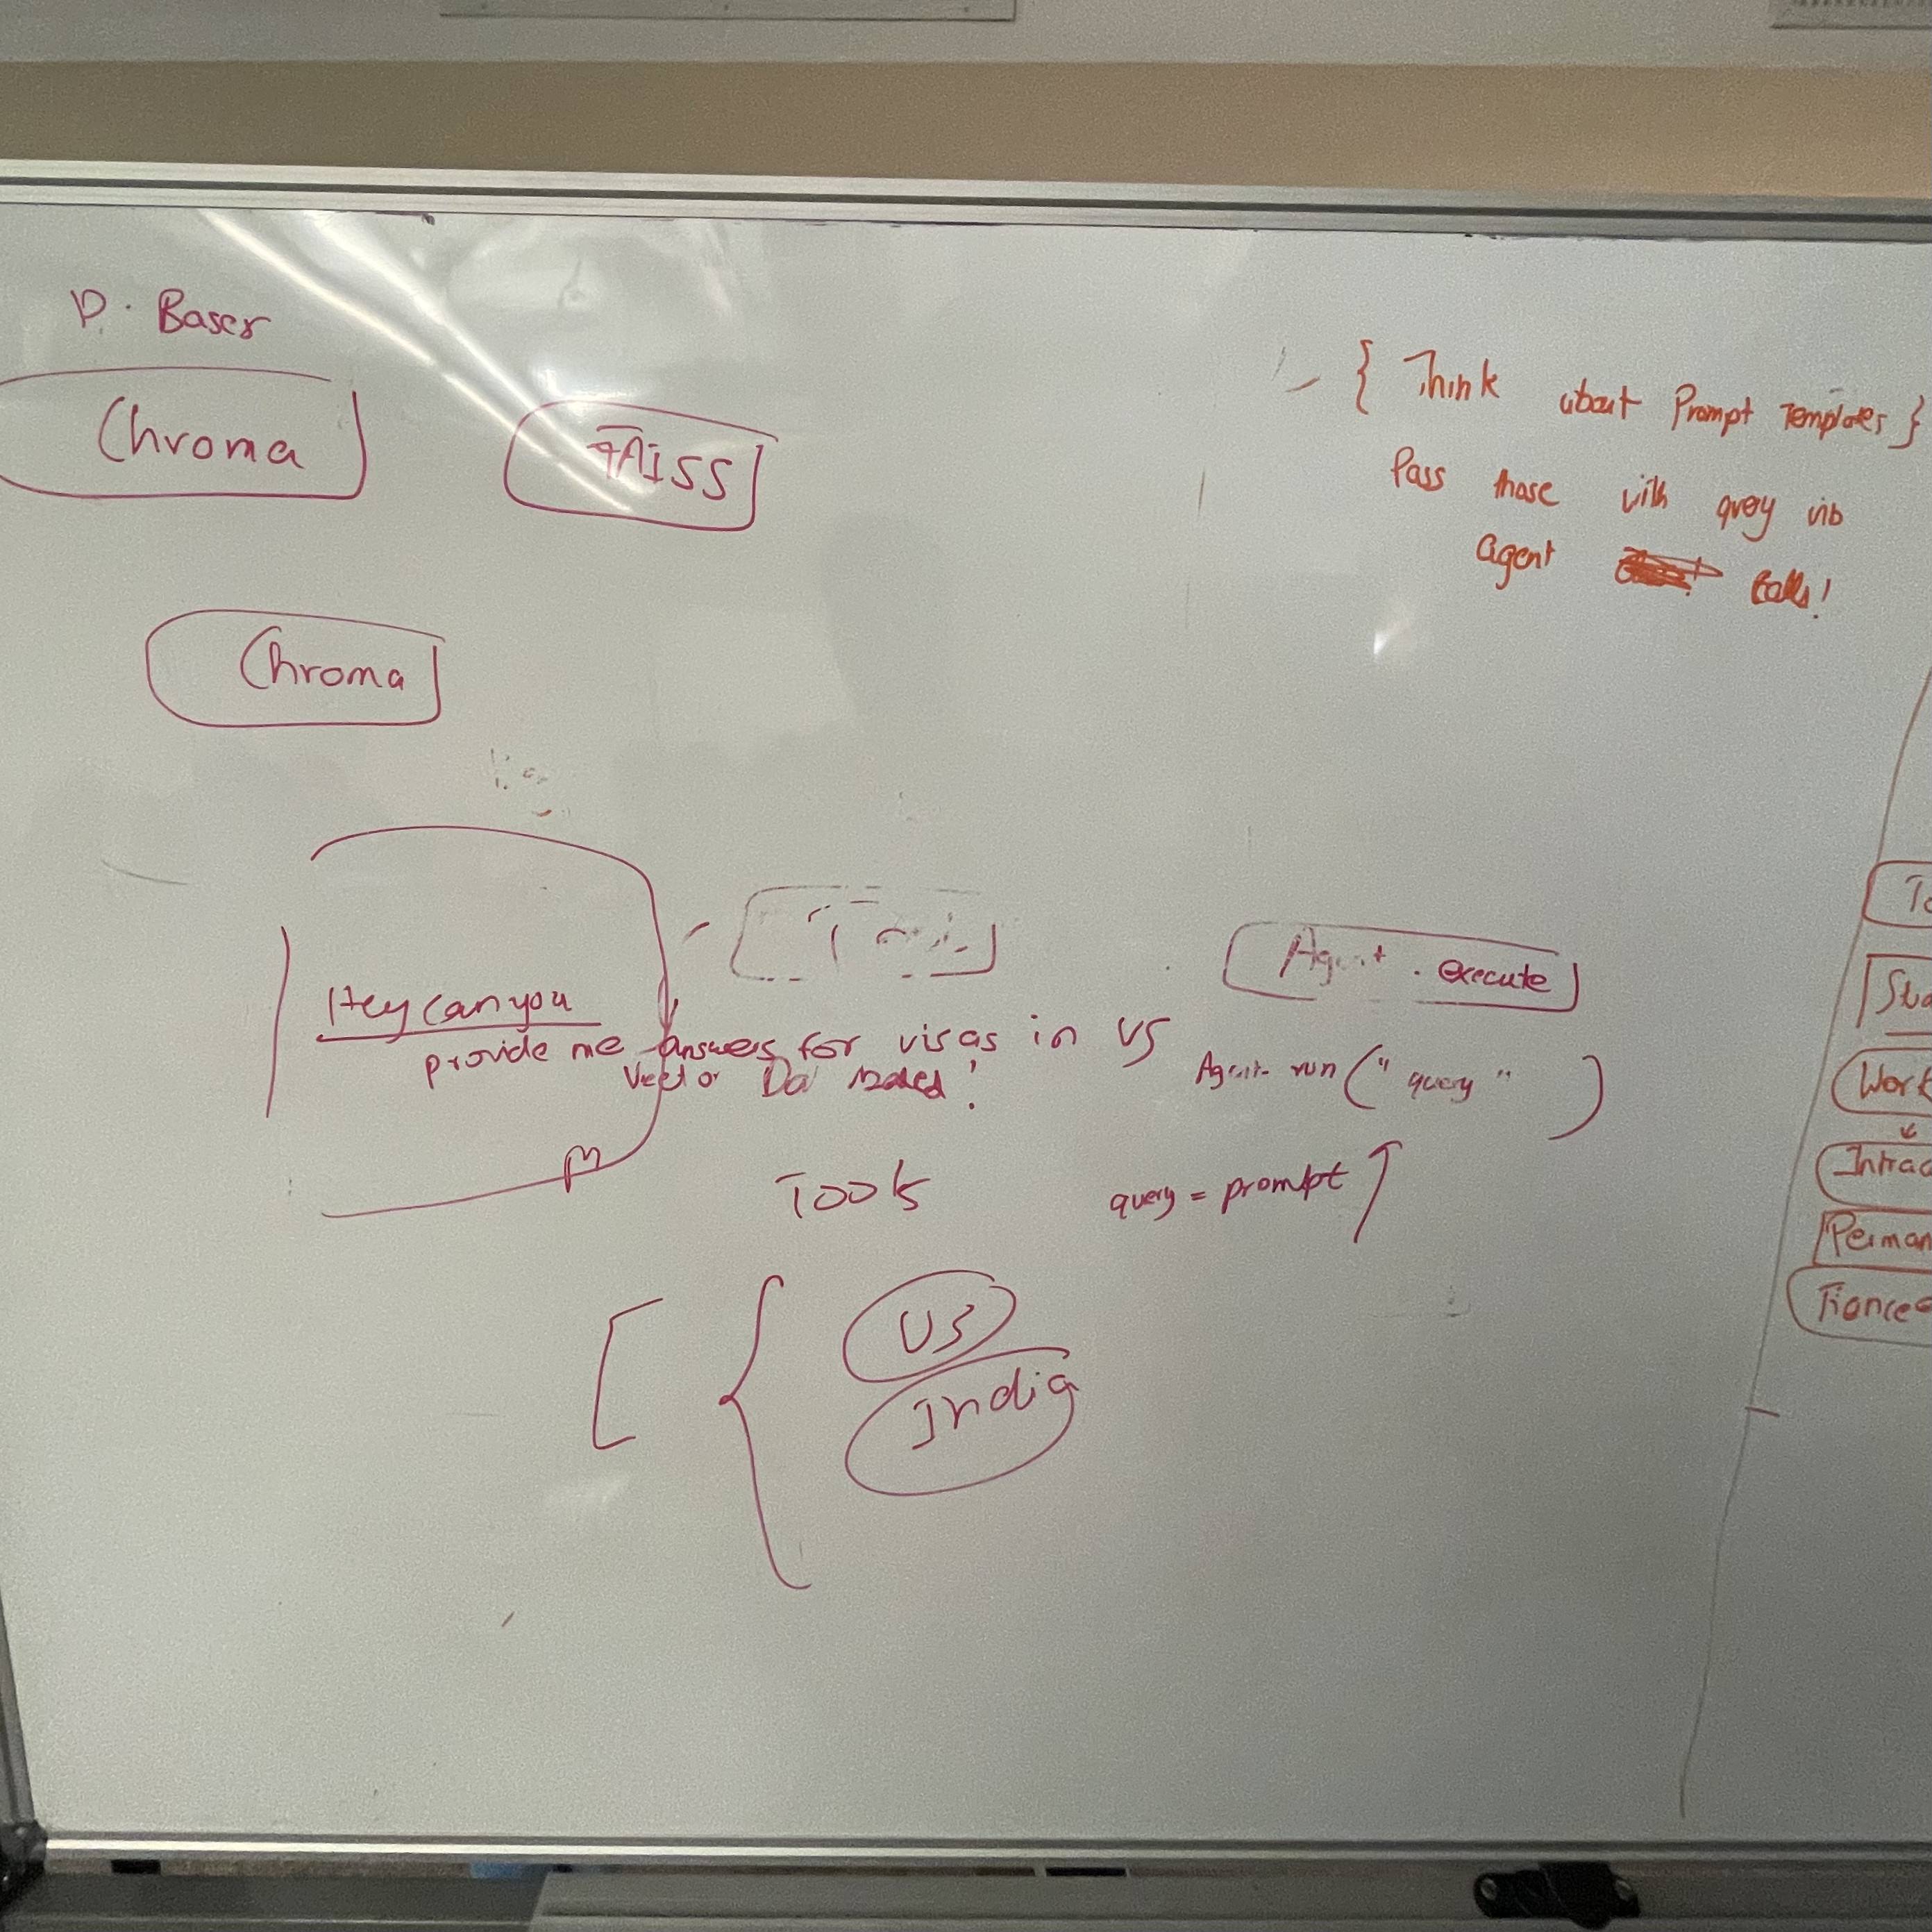 D. Bases
Chroma
FAISS
{ Think about Prompt Templates }
Pass those with query via
agent calls!
Chroma
Agent . execute
Hey can you
provide me answers for visas in US
Vector Da based!
Agent run (" query " )
Tools
query = prompt
US
India
To
Stu
Work
Intrac
Perman
Fiance